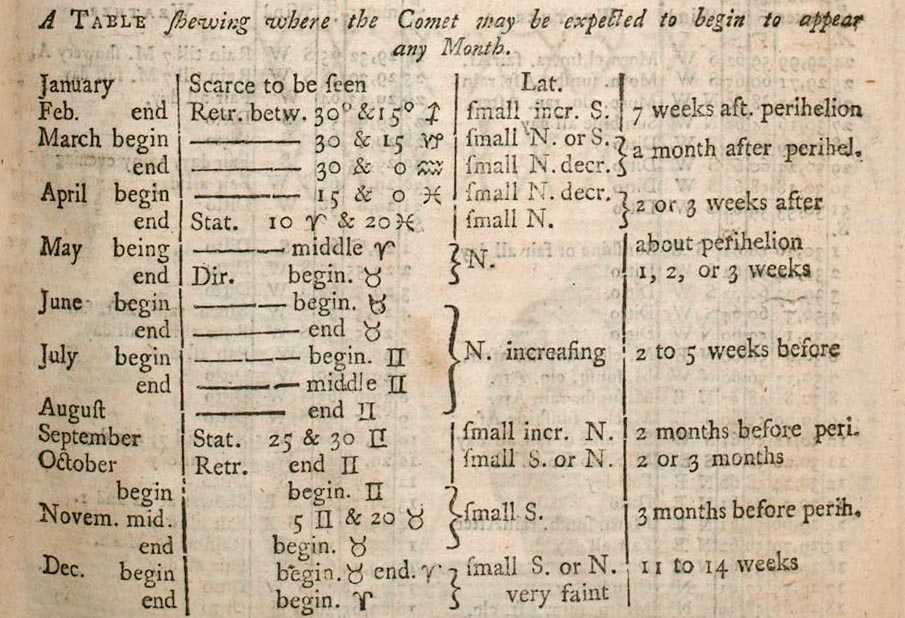 A TABLE ſhewing where the Comet may be expected to begin to appear
any Month.
January Scarce to be ſeen Lat.
Feb. end Retr. betw. 30° & 15° ♐ ſmall incr. S. 7 weeks aft. perihelion
March begin ——— 30 & 15 ♑ ſmall N. or S. } a month after perihel.
end ——— 30 & 0 ♒ ſmall N. decr.
April begin ——— 15 & 0 ♓ ſmall N. decr. } 2 or 3 weeks after
end Stat. 10 ♈ & 20 ♓ ſmall N.
May being ——— middle ♈ } N. about perihelion
end Dir. begin. ♉ 1, 2, or 3 weeks
June begin ——— begin. ♉
end ——— end ♉
July begin ——— begin. ♊ } N. increaſing 2 to 5 weeks before
end ——— middle ♊
Auguſt ——— end ♊
September Stat. 25 & 30 ♊ ſmall incr. N. 2 months before peri.
October Retr. end ♊ ſmall S. or N. 2 or 3 months
begin begin. ♊
Novem. mid. 5 ♊ & 20 ♉ } ſmall S. 3 months before perih.
end begin. ♉
Dec. begin begin. ♉ end. ♈ } ſmall S. or N. 11 to 14 weeks
end begin. ♈ very faint